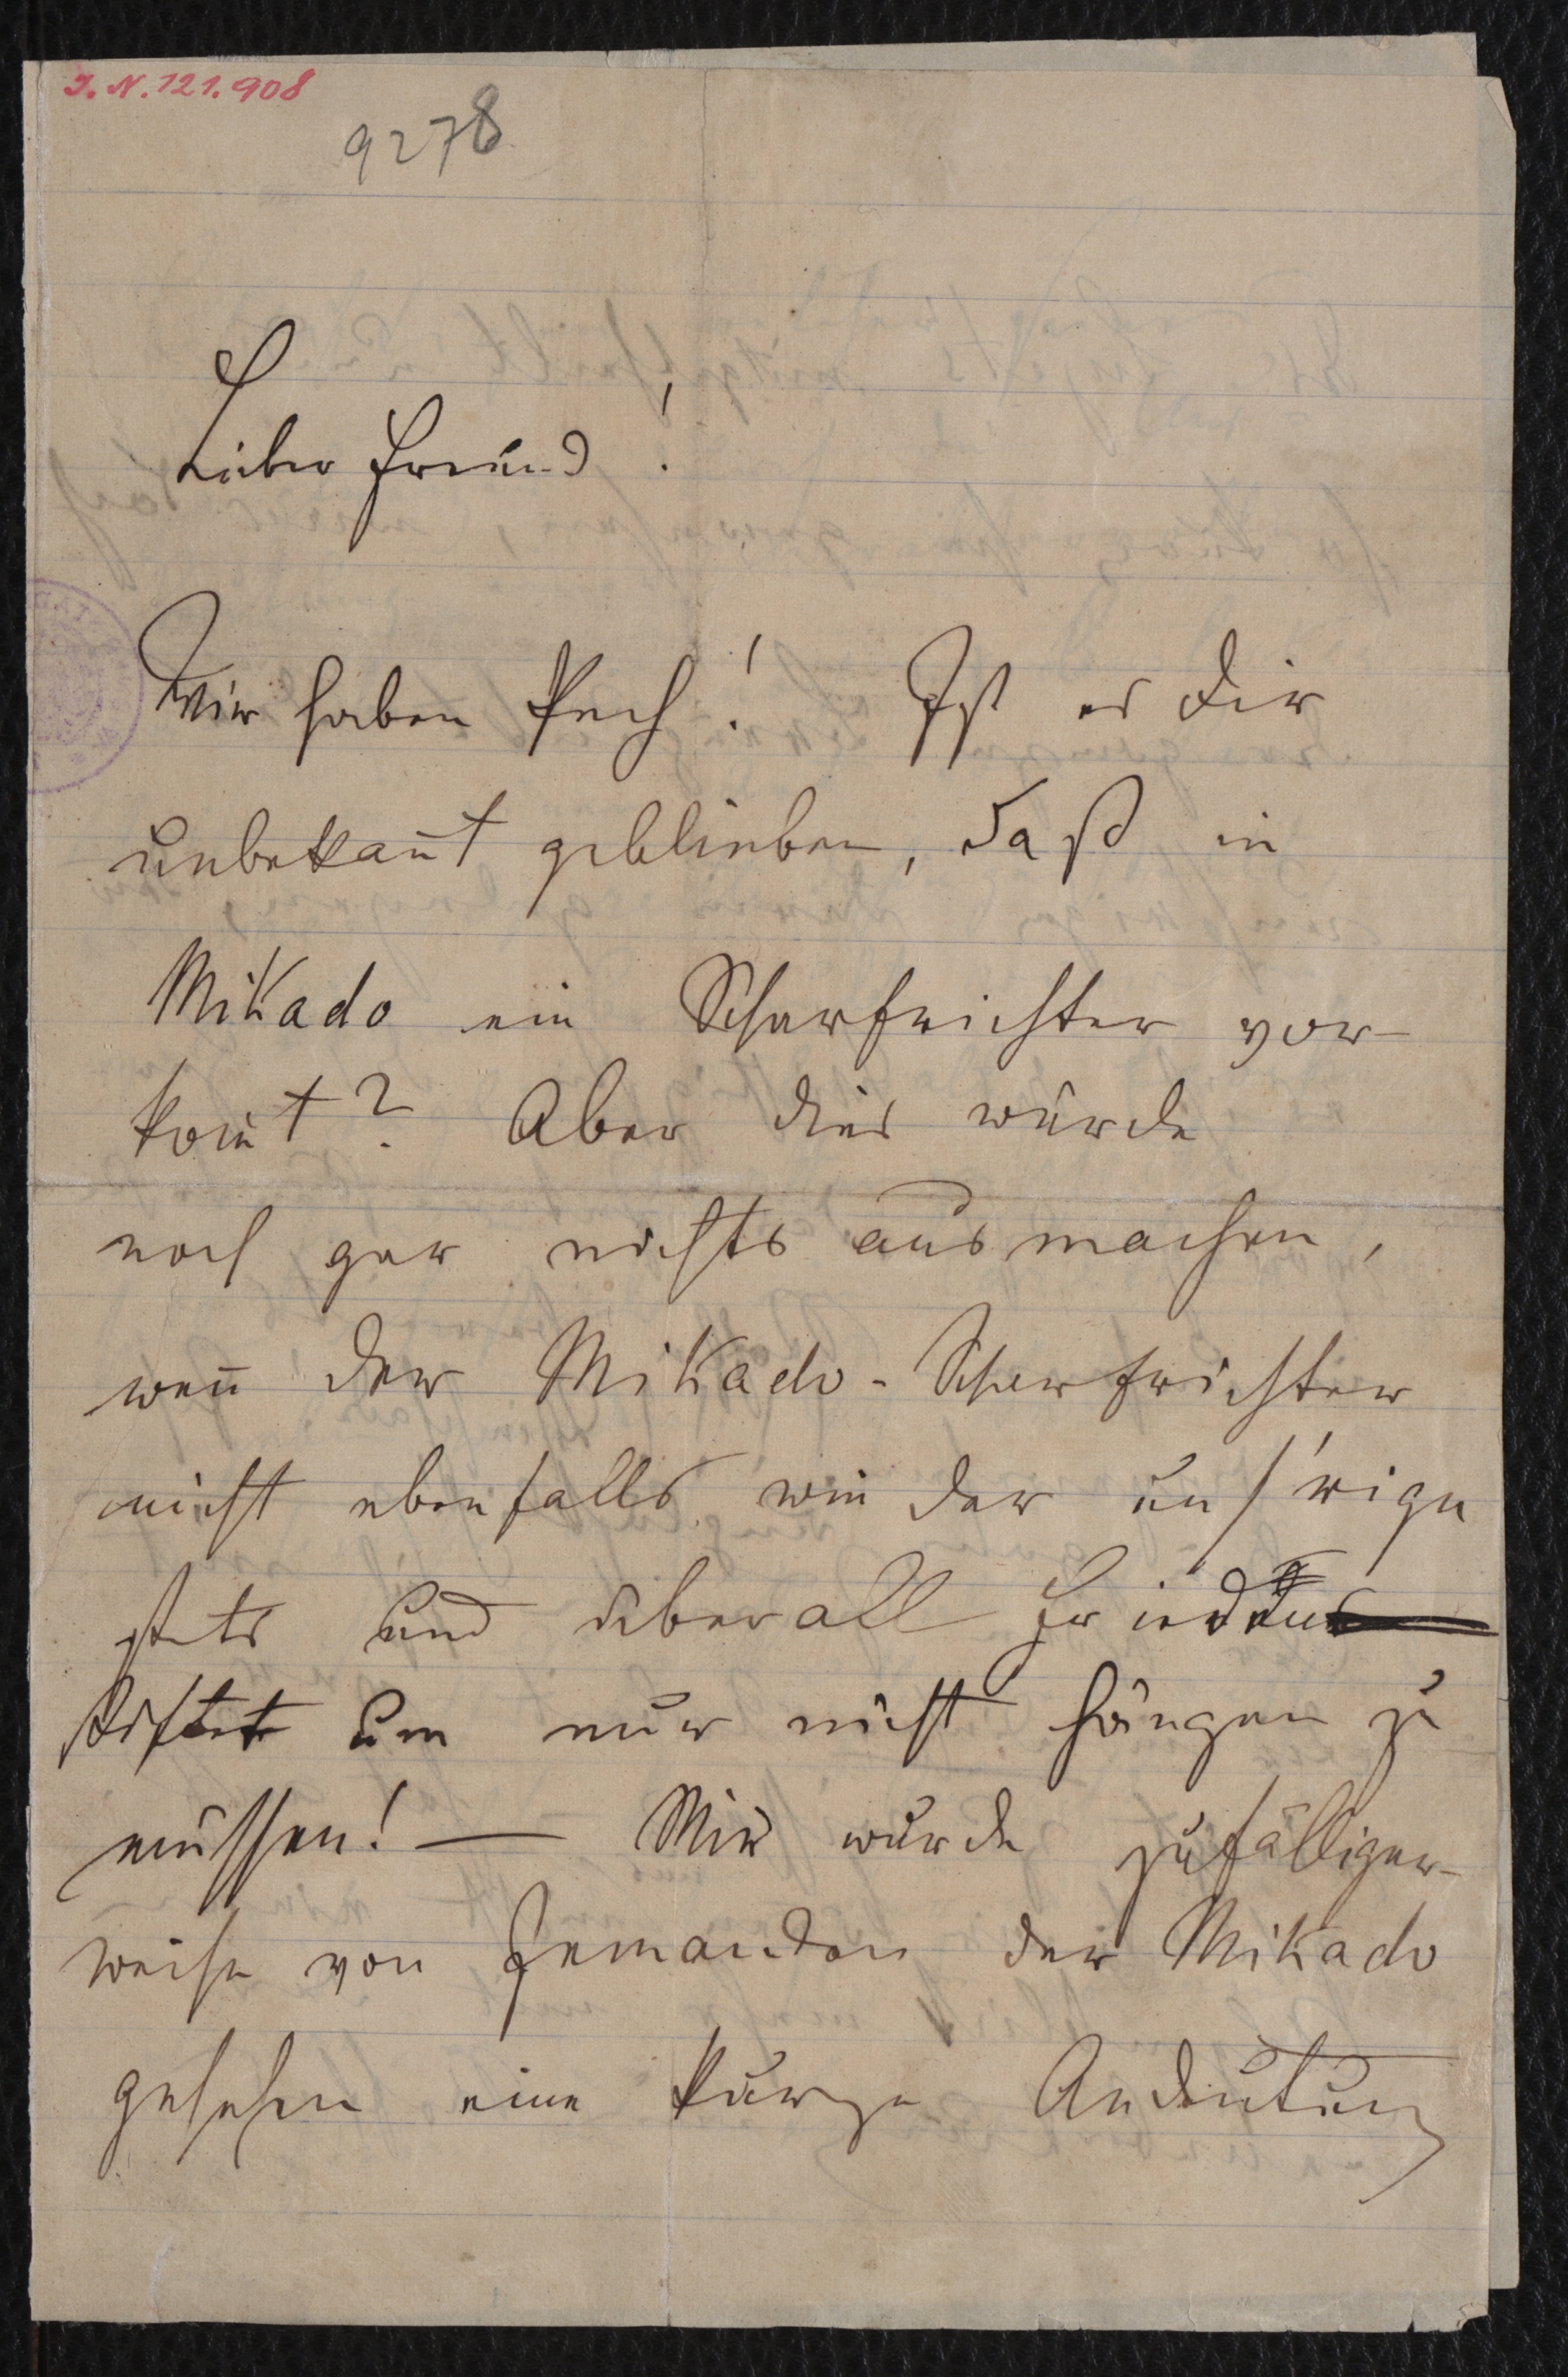 I. N. 121.908
9278
Lieber Freund!
Wir haben Pech! Ist es Dir
unbekan̄t geblieben, daß in
Mikado ein Scharfrichter vor-
kom̄t? Aber dies würde
noch gar nichts ausmachen,
wen̄ der Mikado-Scharfrichter
nicht ebenfalls wie der uns'rige
stets und überall Frieden
stiftet um nur nicht hängen zu
müssen! — Mir wurde zufälliger-
weise von Jemanden der Mikado
gesehen eine kurze Andeutung